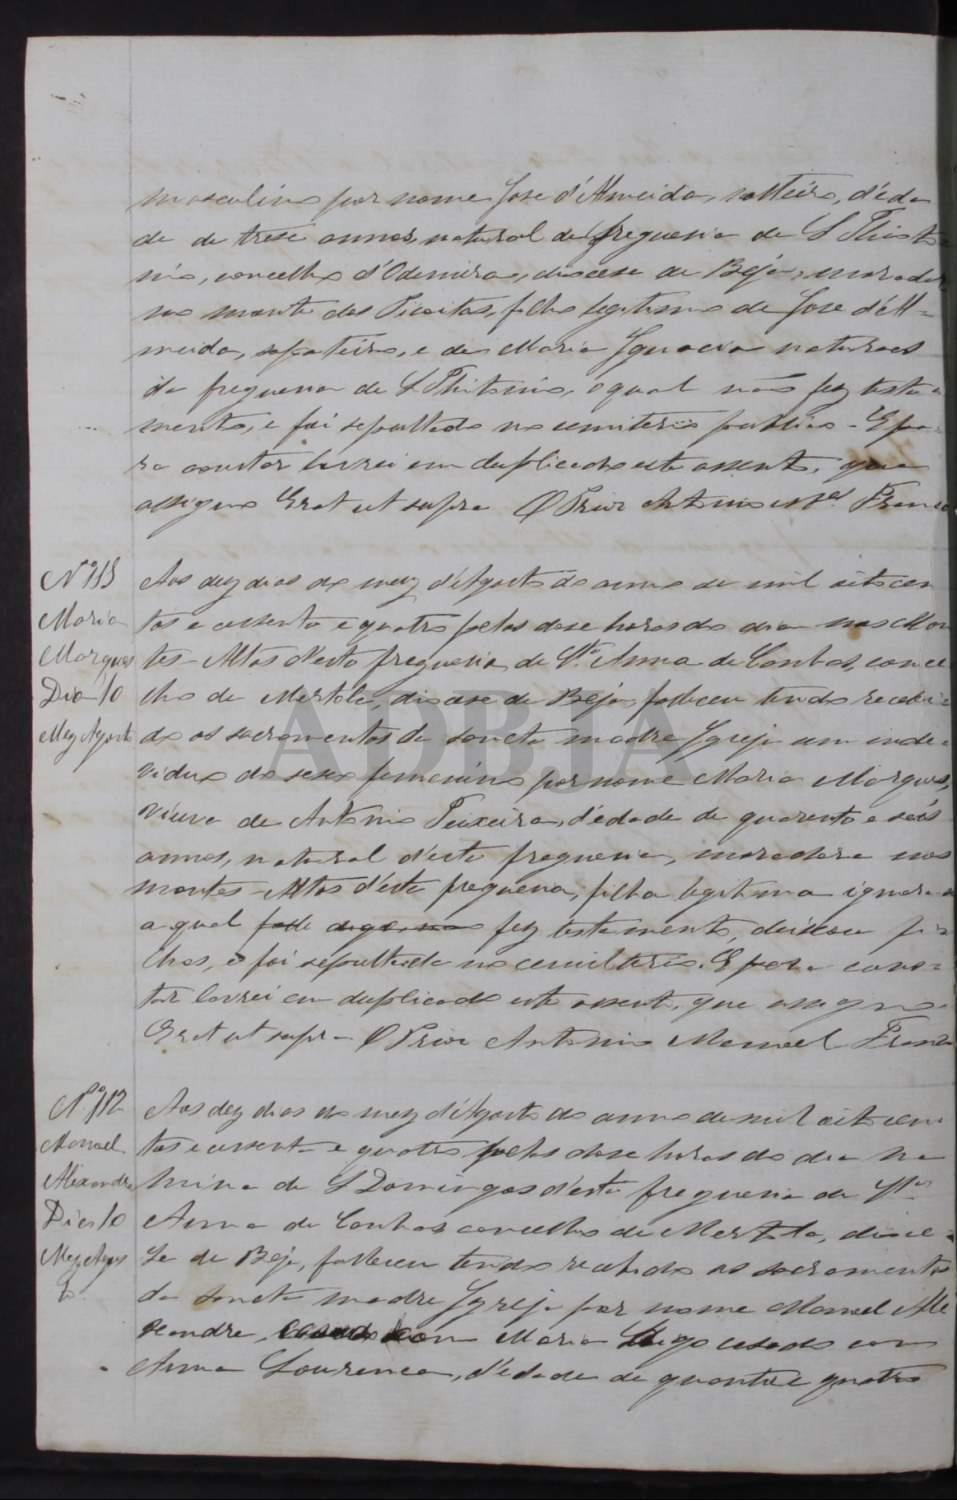 masculino por nome Jose d'Almeida, solteiro, d'eda
de de trese annos, natural da freguesia de S Thioto
nio, concelho d'Odemira, diocese de Beja, morador
no monte dos Picoitos, filho legitimo de Jose d'Al-
meida, sapateiro, e de Maria Ignacia naturaes
da freguesia de S Thiotonio, o qual não fez testa
mento, e foi sepultado no cemiterio publico - E pa
ra constar lavrei em duplicado este assento, que
assigno Erat ut supra O Prior Antonio M.el Franco
Nº 113
Maria
Marques
Dia 10
Mez Agosto
Aos dez dias do mez d'Agosto do anno de mil oitocen
tos e cessenta e quatro pelas dose horas do dia nos Mon
tes-Altos d'esta freguesia de St.ª Anna de Cambas, conce
lho de Mertola, diocese de Beja, falleceu tendo recebi
do os sacramentos da sancta madre Igreja um indi
viduo do sexo femenino por nome Maria Marques,
viuva de Antonio Teixeira, d'edade de quarenta e seis
annos, natural d'esta freguesia, moradora nos
montes-Altos d'esta freguesia, filha legitima ignora
a qual digo, não fez testamento, deixou fi
lhos, e foi sepultada no cemiterio. E para cons-
tar lavrei em duplicado este assento, que assigno
Erat ut supra - O Prior Antonio Manoel Franco
Nº 112
Manoel
Alexandre
Dia 10
Mez Agos
to
Aos dez dias do mez d'Agosto do anno de mil oitocen
tos e cessenta e quatro pelas dose horas do dia na
Mina de S Domingos d'esta freguesia de St.ª
Anna de Cambas concelho de Mertola, dioce-
se de Beja, falleceu tendo recebido os sacramentos
da sancta madre Igreja por nome Manoel Ale
xandre, casado com Maria digo casado com
Anna Lourença, d'edade de quarenta e quatro
ADBJA